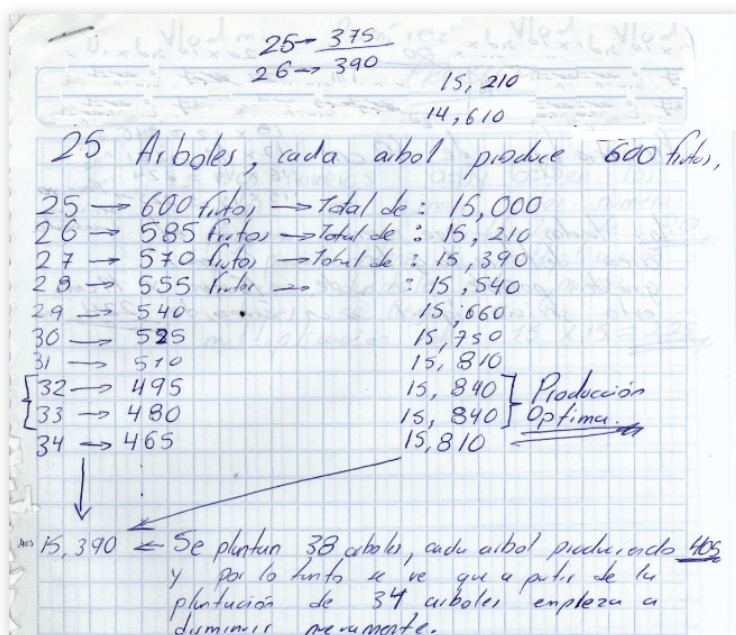 25 → 375
26 → 390
15, 210
14, 610
25 Arboles, cada arbol produce 600 frutos,
25 → 600 frutos → Total de : 15,000
26 → 585 frutos → Total de : 15, 210
27 → 570 frutos → Total de : 15, 390
28 → 555 frutos → : 15, 540
29 → 540 15, 660
30 → 525 15, 750
31 → 510 15, 810
32 → 495 15, 840
33 → 480 15, 840
Producción
Optima.
34 → 465 15,810
15, 390 ← Se plantan 38 arboles, cada arbol produciendo 405
y por lo tanto se ve que a partir de la
plantación de 34 arboles empieza a
disminuir nevamente.